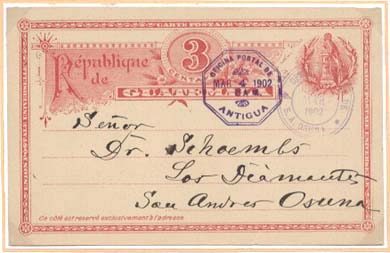 CARTE POSTALE
UNION POSTALE UNIVERSELLE
République
de
GUATEMALA
3
CENTAVOS
OFICINA POSTAL DE
MAR 4 1902
ANTIGUA
1902
Señor
Dr. Schoembs
Los Diamantes
San Andres Osuna
Ce côté est reservé exclusivement à l'adresse.